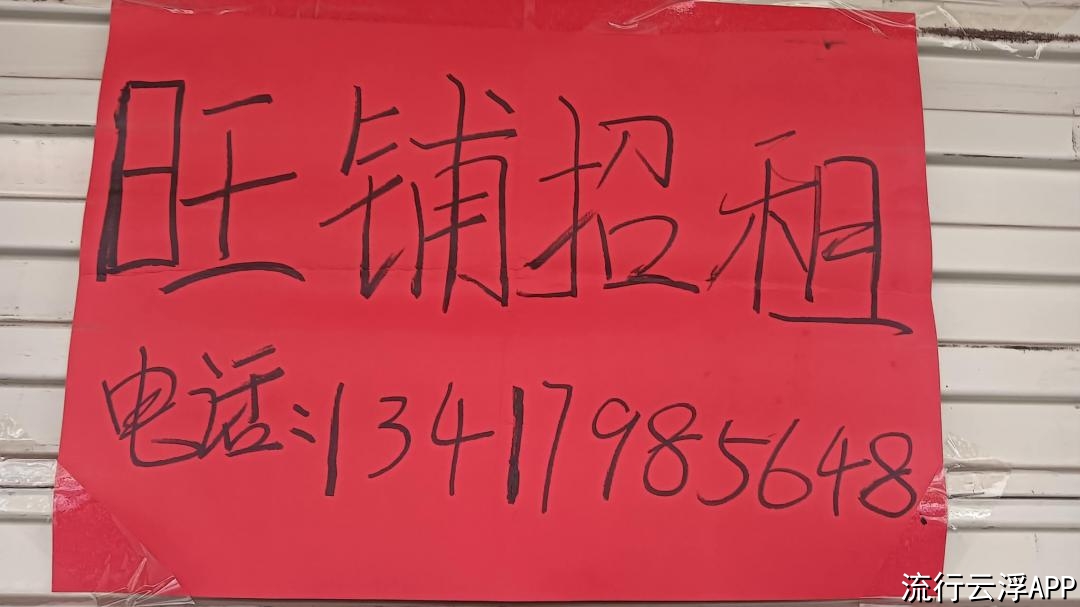 旺铺招租
电话:13417985648.
流行云浮APP